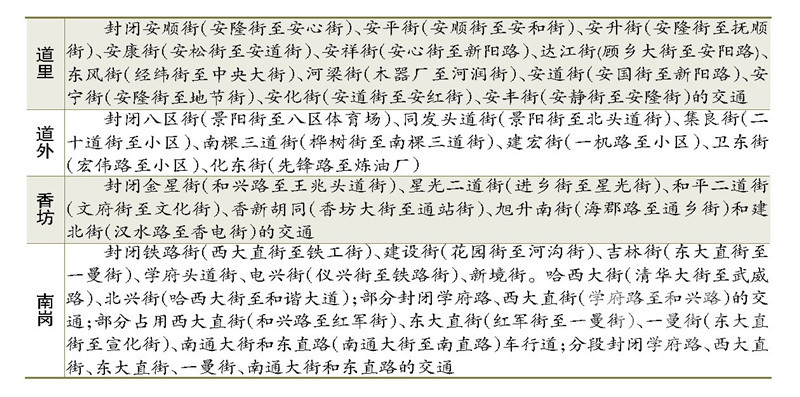 道里
封闭安顺街(安隆街至安心街)、安平街(安顺街至安和街)、安升街(安隆街至抚顺
街)、安康街(安松街至安道街)、安祥街(安心街至新阳路)、达江街(顾乡大街至安阳路)、
东风街(经纬街至中央大街)、河梁街(木器厂至河润街)、安道街(安国街至新阳路)、安
宁街(安隆街至地节街)、安化街(安道街至安红街)、安丰街(安静街至安隆街)的交通
道外
封闭八区街(景阳街至八区体育场)、同发头道街(景阳街至北头道街)、集良街(二
十道街至小区)、南棵三道街(桦树街至南棵三道街)、建宏街(一机路至小区)、卫东街
(宏伟路至小区)、化东街(先锋路至炼油厂)
香坊
封闭金星街(和兴路至王兆头道街)、星光二道街(进乡街至星光街)、和平二道街
(文府街至文化街)、香新胡同(香坊大街至通站街)、旭升南街(海郡路至通乡街)和建
北街(汉水路至香电街)的交通
南岗
封闭铁路街(西大直街至铁工街)、建设街(花园街至河沟街)、吉林街(东大直街至
一曼街)、学府头道街、电兴街(仪兴街至铁路街)、新境街。哈西大街(清华大街至武威
路)、北兴街(哈西大街至和谐大道);部分封闭学府路、西大直街(学府路至和兴路)的交
通;部分占用西大直街(和兴路至红军街)、东大直街(红军街至一曼街)、一曼街(东大直
街至宣化街)、南通大街和东直路(南通大街至南直路)车行道;分段封闭学府路、西大直
街、东大直街、一曼街、南通大街和东直路的交通